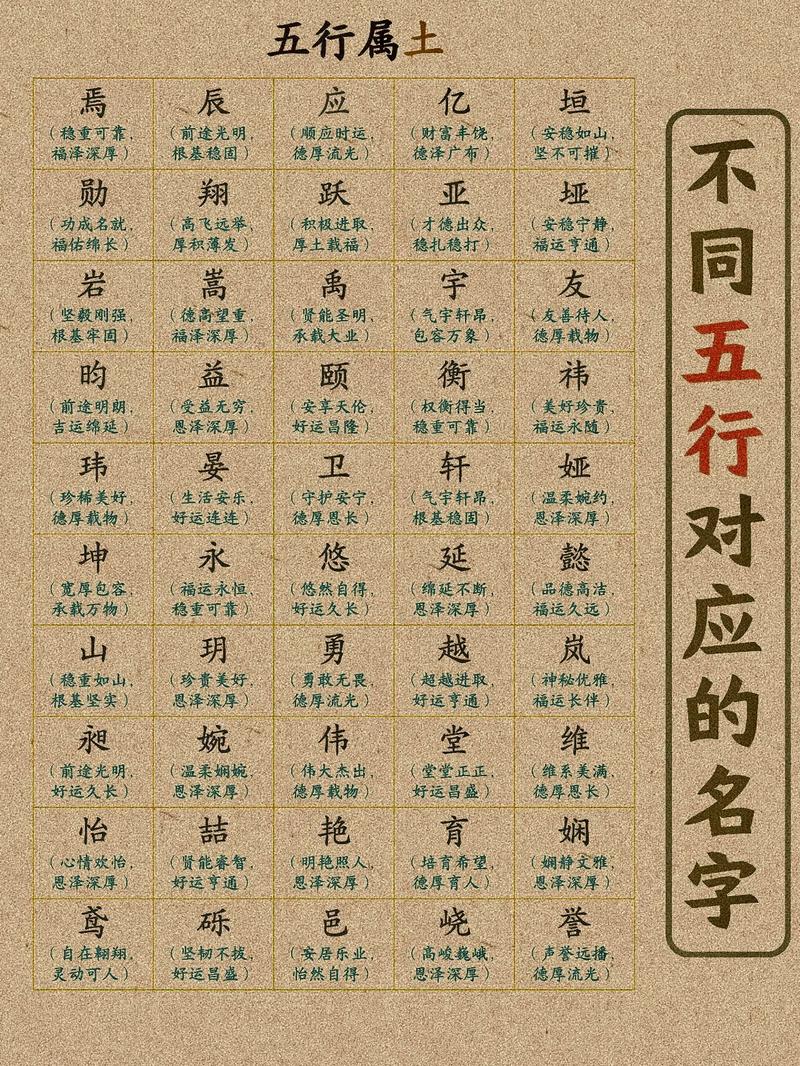 五行属土
焉
（稳重可靠，
福泽深厚）
辰
（前途光明，
根基稳固）
应
（顺应时运，
德厚流光）
亿
（财富丰饶，
德泽广布）
垣
（安稳如山，
坚不可摧）
勋
（功成名就，
福佑绵长）
翔
（高飞远举，
厚积薄发）
跃
（积极进取，
厚土载福）
亚
（才德出众，
稳扎稳打）
垭
（安稳宁静，
福运亨通）
岩
（坚毅刚强，
根基牢固）
嵩
（德高望重，
福泽深厚）
禹
（贤能圣明，
承载大业）
宇
（气宇轩昂，
包容万象）
友
（友善待人，
德厚载物）
昀
（前途明朗，
吉运绵延）
益
（受益无穷，
恩泽深厚）
颐
（安享天伦，
好运昌隆）
衡
（权衡得当，
稳重可靠）
祎
（美好珍贵，
福运永随）
玮
（珍稀美好，
德厚载物）
晏
（生活安乐，
好运连连）
卫
（守护安宁，
德厚恩长）
轩
（气宇轩昂，
根基稳固）
娅
（温柔婉约，
恩泽深厚）
坤
（宽厚包容，
承载万物）
永
（福运永恒，
稳重可靠）
悠
（悠然自得，
好运久长）
延
（绵延不断，
恩泽深厚）
懿
（品德高洁，
福运久远）
山
（稳重如山，
根基坚实）
玥
（珍贵美好，
恩泽深厚）
勇
（勇敢无畏，
德厚流光）
越
（超越进取，
好运亨通）
岚
（神秘优雅，
福运长伴）
昶
（前途光明，
好运久长）
婉
（温柔娴婉，
恩泽深厚）
伟
（伟大杰出，
德厚载物）
堂
（堂堂正正，
好运昌盛）
维
（维系美满，
德厚恩长）
怡
（心情欢怡，
恩泽深厚）
喆
（贤能睿智，
好运亨通）
艳
（明艳照人，
恩泽深厚）
育
（培育希望，
德厚育人）
娴
（娴静文雅，
恩泽深厚）
鸢
（自在翱翔，
灵动可人）
砾
（坚韧不拔，
好运昌盛）
邑
（安居乐业，
怡然自得）
峣
（高峻巍峨，
恩泽深厚）
誉
（声誉远播，
德厚流光）
不同五行对应的名字